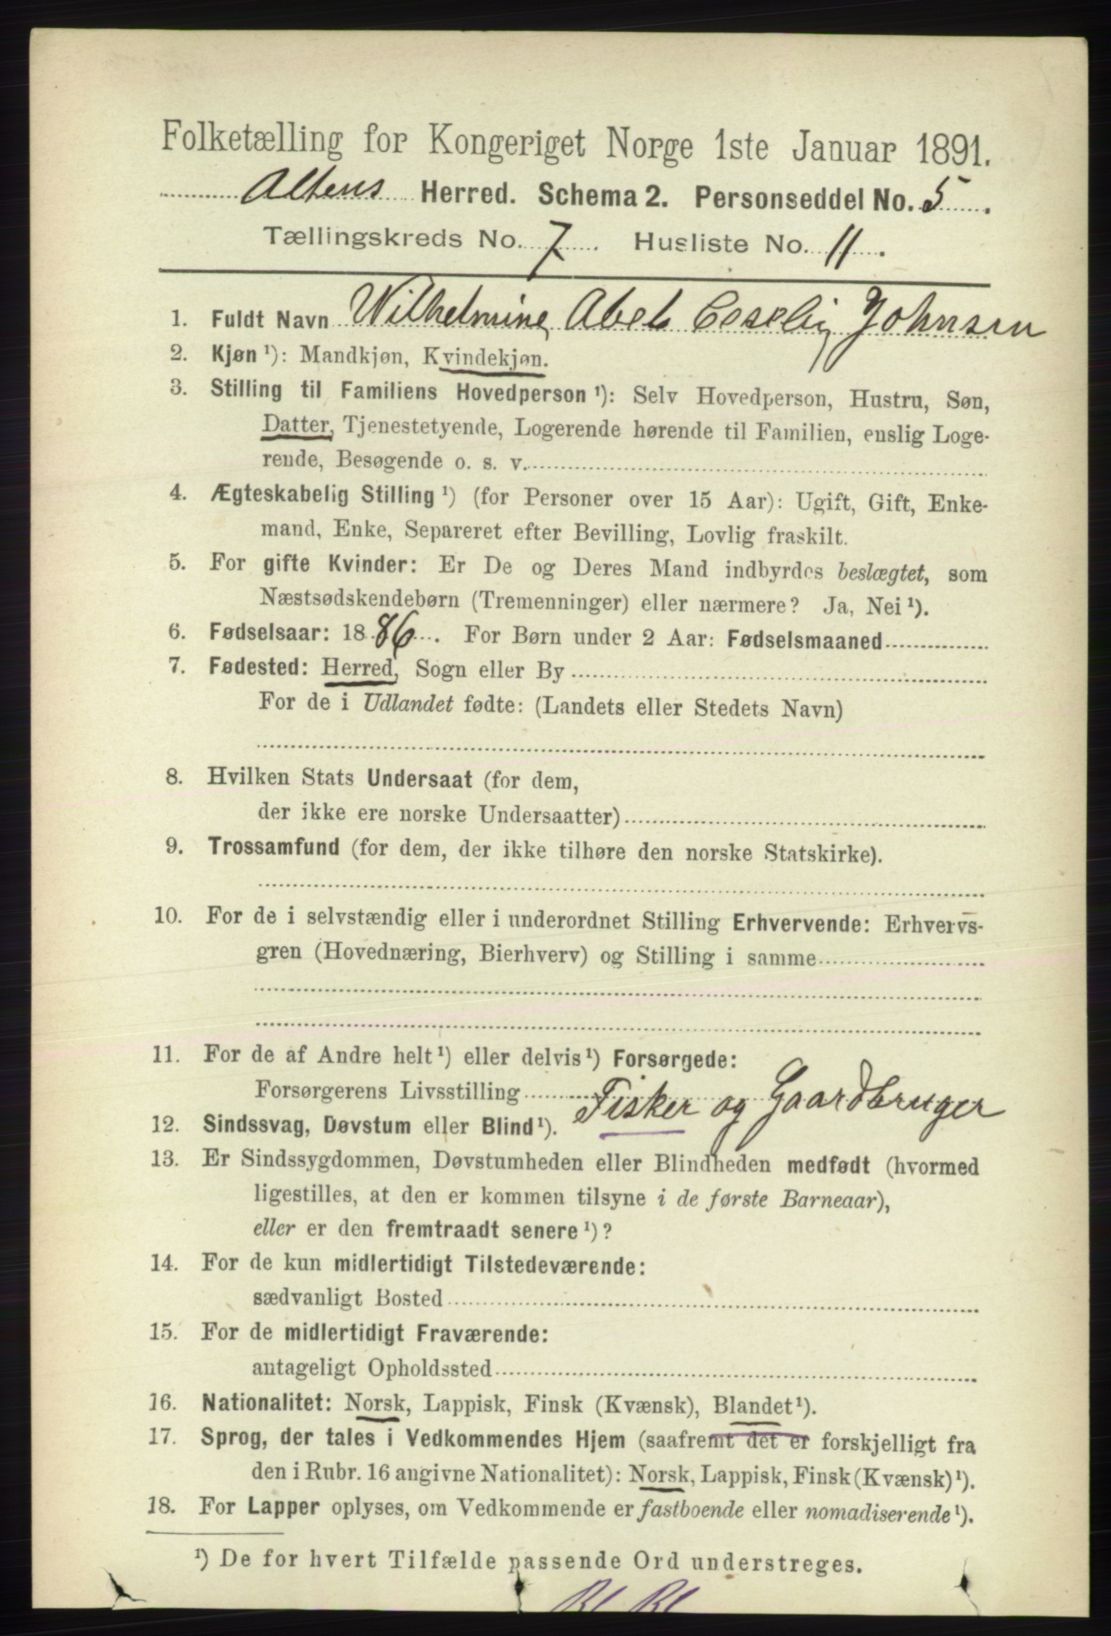 Folketælling for Kongeriget Norge 1ste Januar 1891.
Altens Herred. Schema 2. Personseddel No. 5.
Tællingskreds No. 7. Husliste No. 11.
1. Fuldt Navn Wilhelmine Johnsen
2. Kjøn ¹): Mandkjøn, Kvindekjøn.
3. Stilling til Familiens Hovedperson ¹): Selv Hovedperson, Hustru, Søn,
Datter, Tjenestetyende, Logerende hørende til Familien, enslig Loge-
rende, Besøgende o. s. v.
4. Ægteskabelig Stilling ¹) (for Personer over 15 Aar): Ugift, Gift, Enke-
mand, Enke, Separeret efter Bevilling, Lovlig fraskilt.
5. For gifte Kvinder: Er De og Deres Mand indbyrdes beslægtet, som
Næstsødskendebørn (Tremenninger) eller nærmere? Ja, Nei ¹).
6. Fødselsaar: 1886. For Børn under 2 Aar: Fødselsmaaned
7. Fødested: Herred, Sogn eller By
For de i Udlandet fødte: (Landets eller Stedets Navn)
8. Hvilken Stats Undersaat (for dem,
der ikke ere norske Undersaatter)
9. Trossamfund (for dem, der ikke tilhøre den norske Statskirke).
10. For de i selvstændig eller i underordnet Stilling Erhvervende: Erhvervs-
gren (Hovednæring, Bierhverv) og Stilling i samme
11. For de af Andre helt ¹) eller delvis ¹) Forsørgede:
Forsørgerens Livsstilling Fisker og Gaardbruger
12. Sindssvag, Døvstum eller Blind ¹).
13. Er Sindssygdommen, Døvstumheden eller Blindheden medfødt (hvormed
ligestilles, at den er kommen tilsyne i de første Barneaar),
eller er den fremtraadt senere ¹)?
14. For de kun midlertidigt Tilstedeværende:
sædvanligt Bosted
15. For de midlertidigt Fraværende:
antageligt Opholdssted
16. Nationalitet: Norsk, Lappisk, Finsk (Kvænsk), Blandet ¹).
17. Sprog, der tales i Vedkommendes Hjem (saafremt det er forskjelligt fra
den i Rubr. 16 angivne Nationalitet): Norsk, Lappisk, Finsk (Kvænsk) ¹).
18. For Lapper oplyses, om Vedkommende er fastboende eller nomadiserende ¹).
¹) De for hvert Tilfælde passende Ord understreges.
Bl Bl